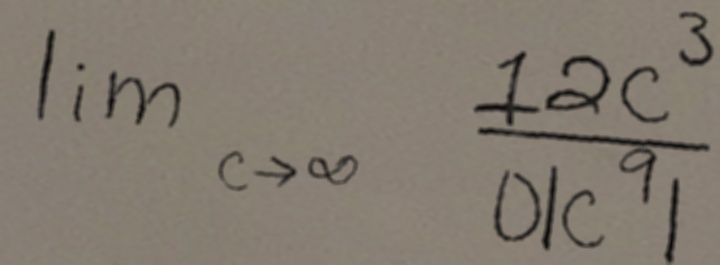 lim c→∞ 12c³
0|c⁹|